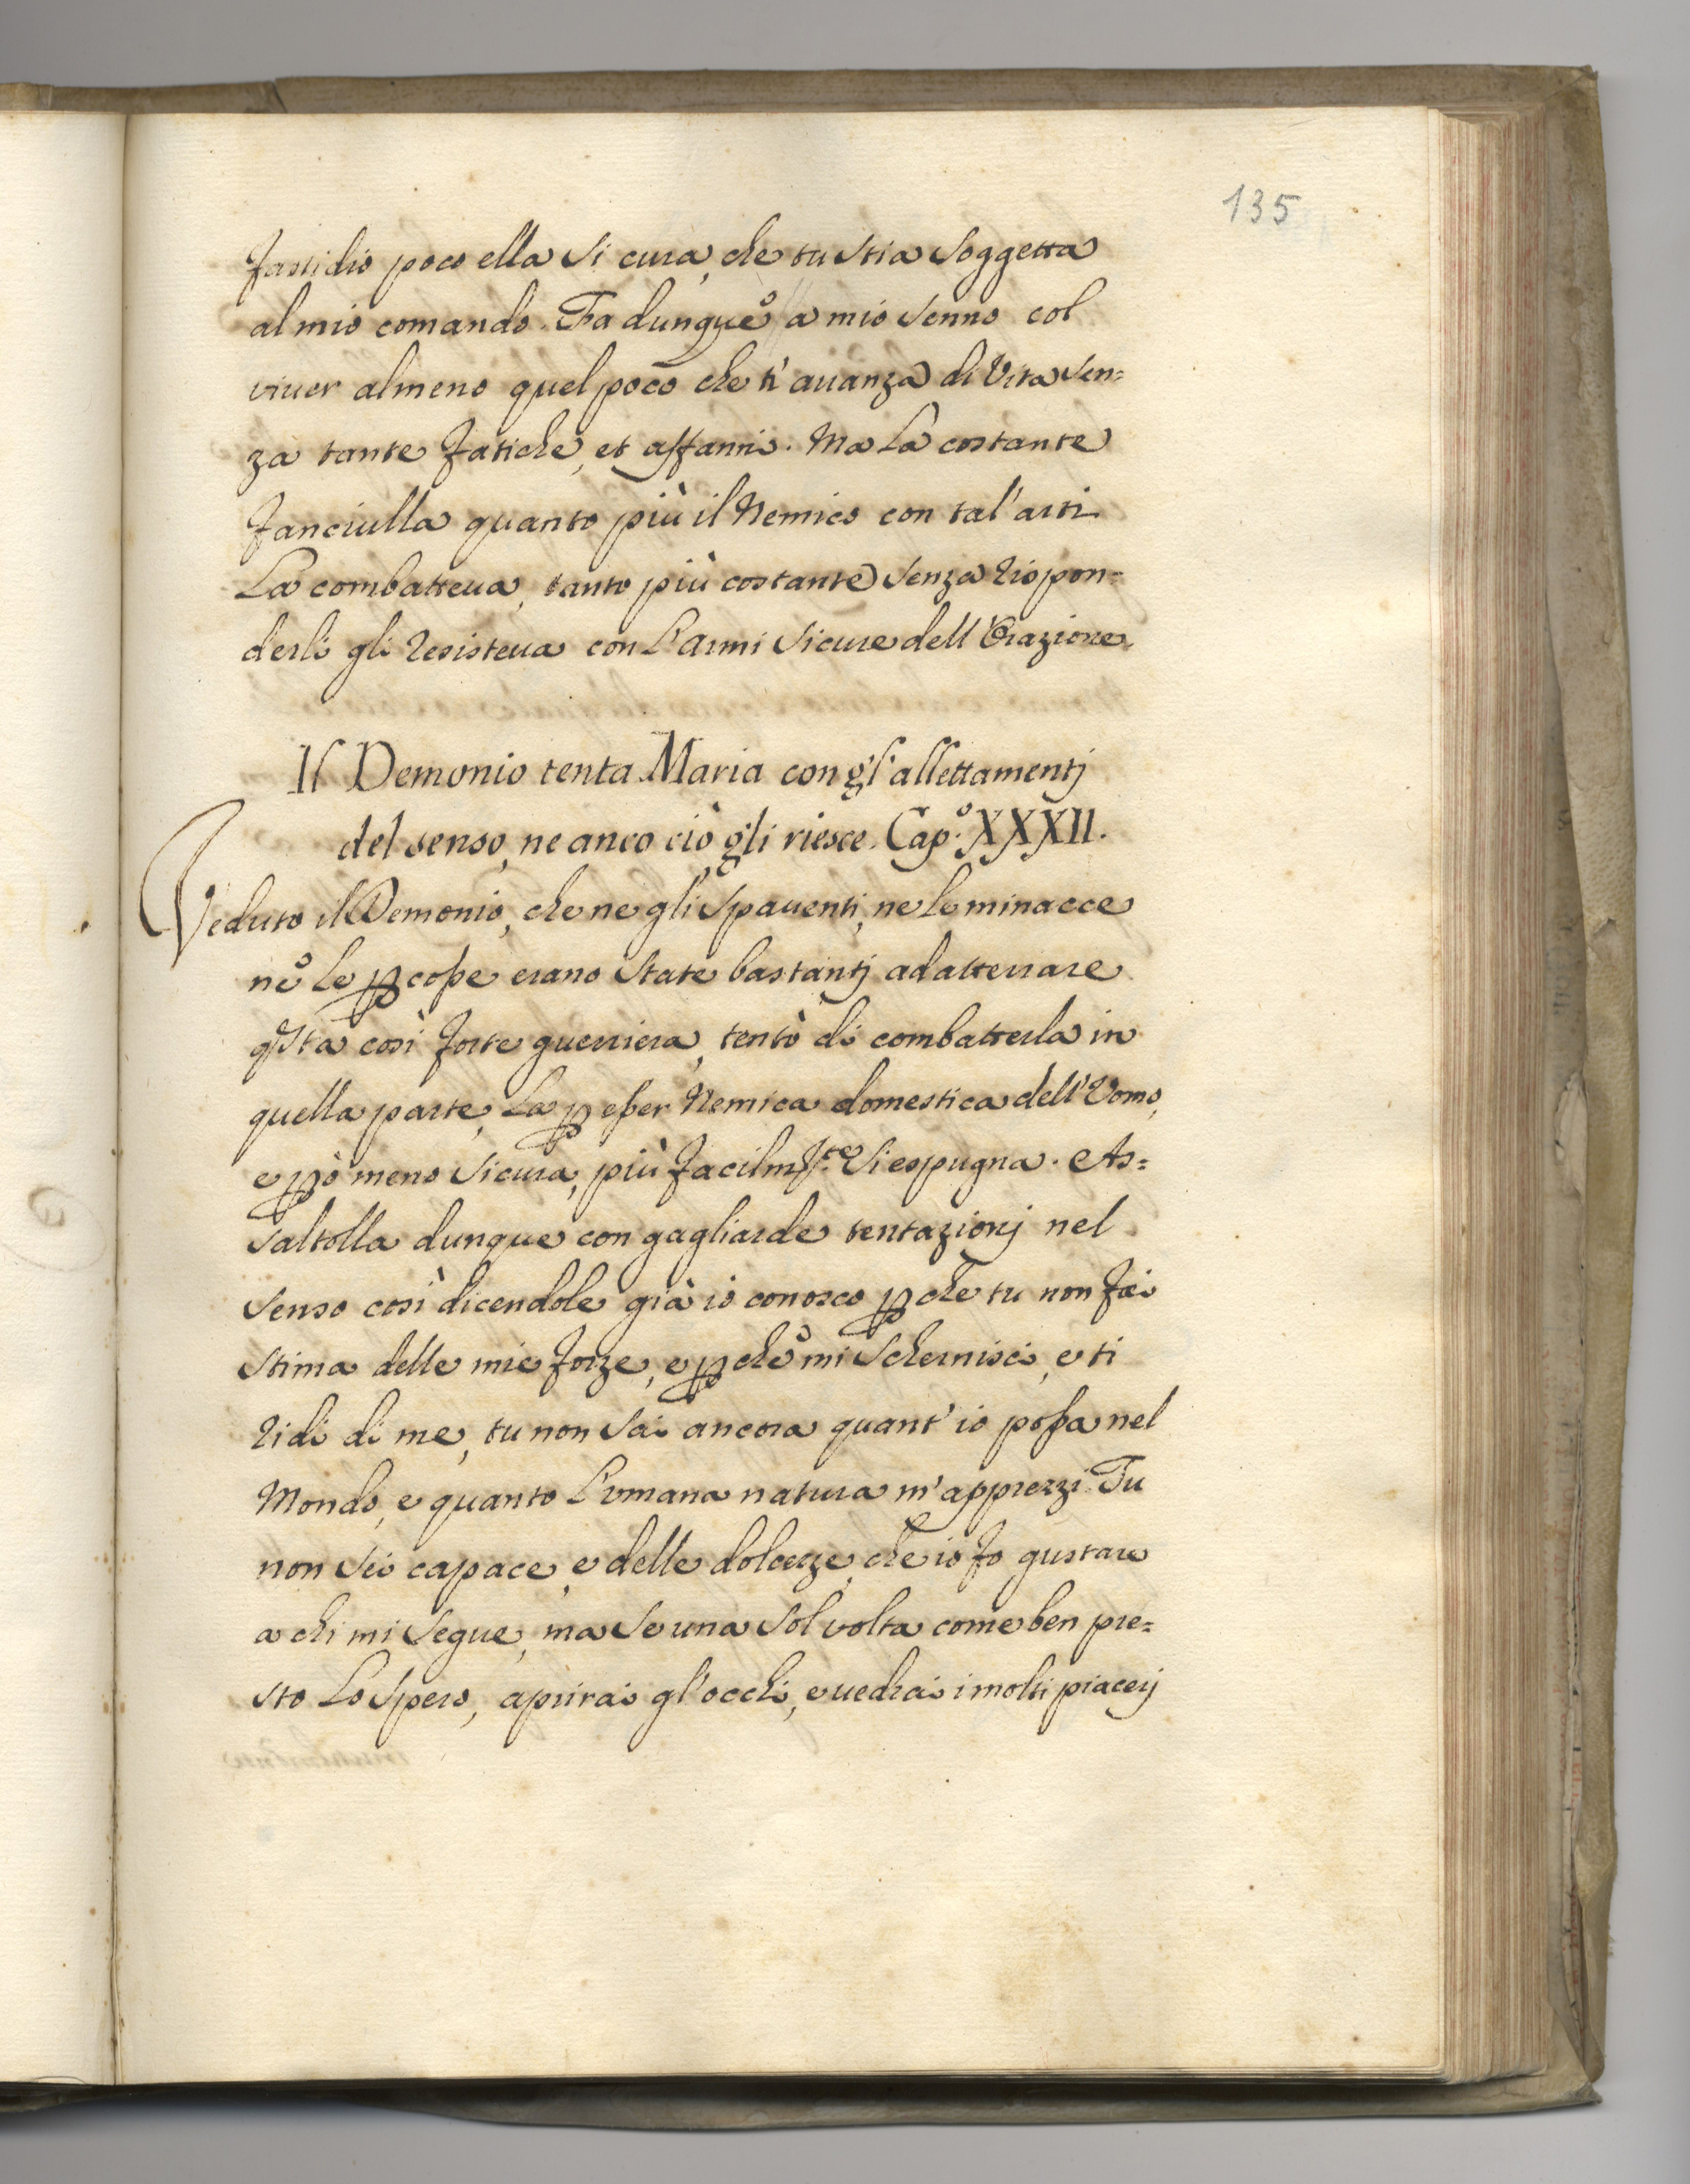 135
fastidio poco ella si cura, che tu stia soggetta
al mio comando. Fa dunque a mio senno col
viuer almeno quel poco che ti auanza di Vita sen=
za tante fatiche, et affanni. Ma la costante
fanciulla quanto più il Nemico con tal'arti
La combatteua, tanto più costante senza rispon=
derli gli resisteua con L'armi sicure dell'Orazione.
Il Demonio tenta Maria con gl'allettamentj
del senso, ne anco ciò gli riesce. Cap.º XXXII.
Veduto il Demonio, che ne gli spauenti, ne le minacce
ne le p̱cosse erano state bastantj ad atterrare
qsta così forte guerriera, tentò di combatterla in
quella parte, La p̱ esser Nemica domestica dell'Vomo,
e p̱ò meno sicura, più facilmte si espugna. As=
saltolla dunque con gagliarde tentazionj nel
senso così dicendole già io conosco p̱che tu non fai
stima delle mie forze, e p̱chè mi schernisci, e ti
ridi di me, tu non sai ancora quant'io possa nel
Mondo, e quanto L'vmana natura m'apprezzi. Tu
non sei capace, e delle dolcezze, che io fo gustare
a chi mi segue, ma se una sol volta come ben pre=
sto Lo spero, aprirai gl'occhi, e uedrai i molti piacerj